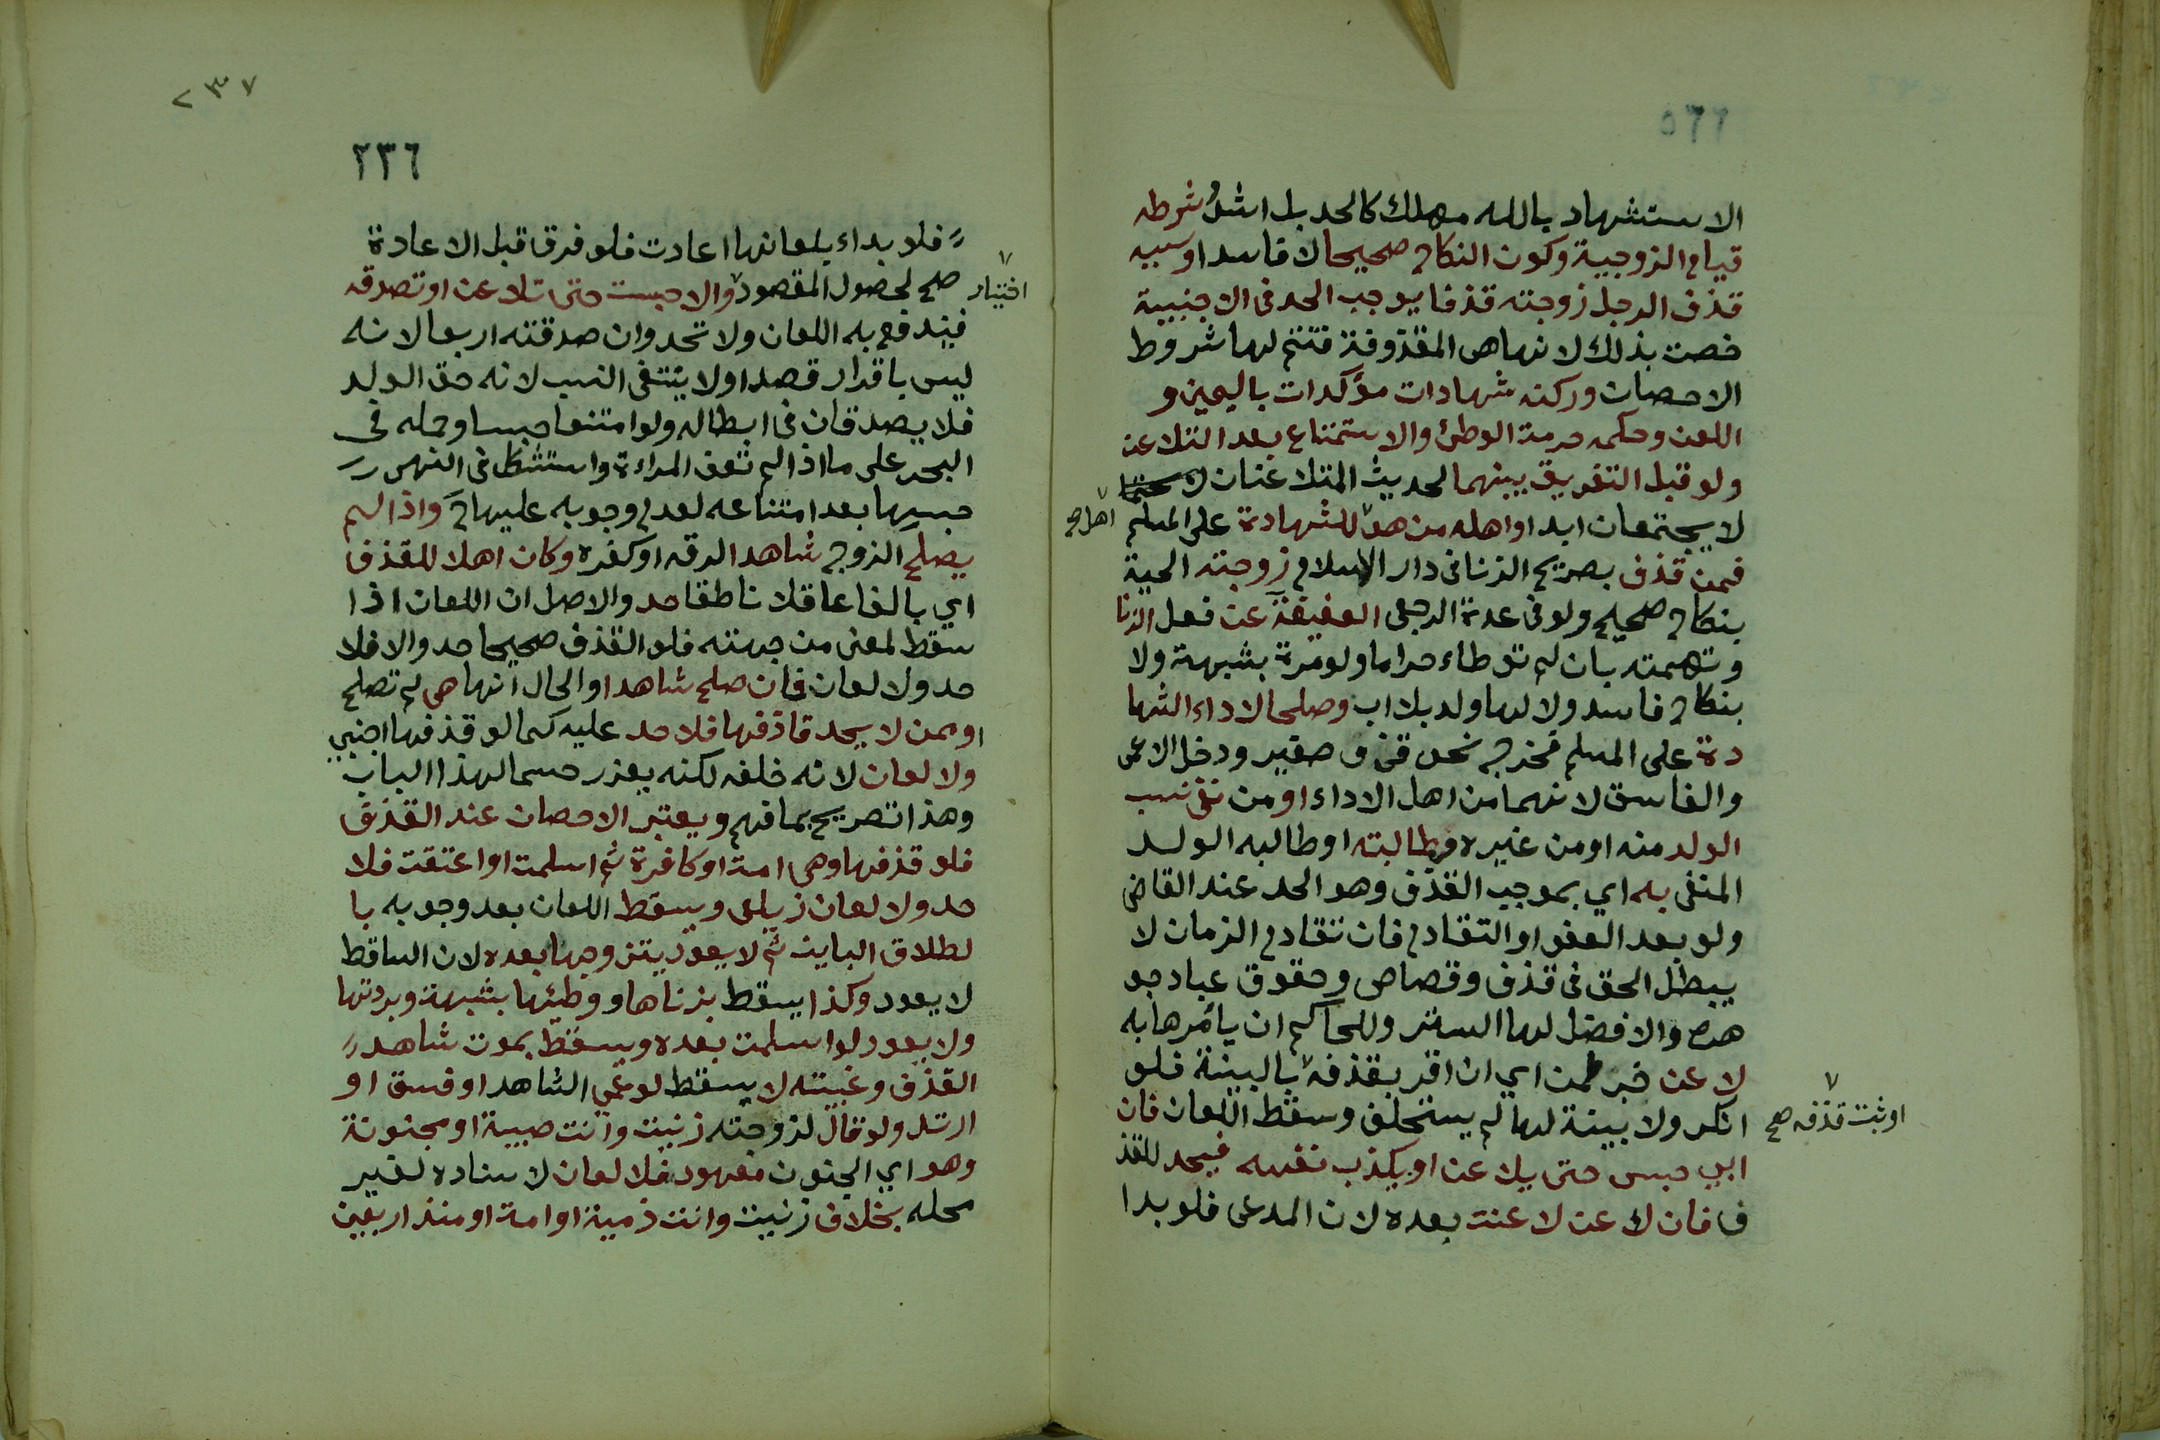 الاستشهاد بالله مهلك كالحد بل اشد شرطه
قيام الزوجية وكون النكاح صحيحا لا فاسدا وسببه
قذف الرجل زوجته قذفا يوجب الحد في الاجنبية
خصت بذلك لانها هي المقذوفة فتتم لها شروط
الاحصان وركنه شهادات مؤكدات باليمين و
اللعن وحكمه حرمة الوطئ والاستمتاع بعد التلاعن
ولو قبل التفريق بينهما لحديث المتلاعنان
لا يجتمعان ابدا واهله من هو للشهادة على المسلم
اهل صح
فمن قذف بصريح الزنا في دار الاسلام زوجته الحية
بنكاح صحيح ولو في عدة الرجعي العفيفة عن فعل الزنا
وتهمته بان لم توطاء حراما ولو مرة بشبهة ولا
بنكاح فاسد ولا لها ولد بلا اب وصلحا لاداء الشها
دة على المسلم فخرج نحو قن وصغير ودخل الاعمى
والفاسق لانهما من اهل الاداء او من نفى نسب
الولد منه او من غيره وطالبته او طالبه الولد
المنفى به اي بموجب القذف وهو الحد عند القاضي
ولو بعد العفو او التقادم فان تقادم الزمان لا
يبطل الحق في قذف وقصاص وحقوق عباد جو
هرة والافضل لها الستر وللحاكم ان يأمرها به
لاعن خبر لمن اي ان اقر بقذفه بالبينة فلو
او ثبت قذفه صح
انكر ولا بينة لها لم يستحلف وسقط اللعان فان
ابي حبس حتى يلاعن او يكذب نفسه فيحد للقذ
ف فان لاعن لاعنت بعده لان المدعى فلو بدا
٢٣٧
٢٣٦
فلو بداء بلعانها اعادت فلو فرق قبل الاعادة
صح لحصول المقصود والا حبست حتى تلاعن او تصدقه
اختيار
فيندفع به اللعان ولا تحد وان صدقته اربعا لانه
ليس باقرار قصدا ولا ينتفى النسب لانه حق الولد
فلا يصدقان في ابطاله ولو امتنعا حبسا وحمله في
البحر على ما اذا لم تعف المراءة واستشكل في النهر
حبسها بعد امتناعه لعدم وجوبه عليها ح واذا لم
يصلح الزوج شاهدا لرقه او كفره وكان اهلا للقذف
اي بالغا عاقلا ناطقا حد والاصل ان اللعان اذا
سقط لمعنى من جهته فلو القذف صحيحا حد والا فلا
حد ولا لعان فان صلح شاهدا والحال انها هي لم تصلح
او ممن لا يحد قاذفها فلا حد عليه كما لو قذفها اجنبي
ولا لعان لانه خلفه لكنه يعزر حسما لهذا الباب
وهذا تصريح بما فهم ويعتبر الاحصان عند القذف
فلو قذفها وهي امة او كافرة ثم اسلمت او اعتقت فلا
حد ولا لعان زيلعي ويسقط اللعان بعد وجوبه با
لطلاق الباين ثم لا يعود بتزوجها بعده لان الساقط
لا يعود وكذا يسقط بزناها ووطئها بشبهة وبردتها
ولا يعود لو اسلمت بعده ويسقط بموت شاهد
القذف وغيبته لا يسقط لو عمي الشاهد او فسق او
ارتد ولو قال لزوجته زنيت وانت صبية او مجنونة
وهو اي الجنون معهود فلا لعان لاسناده لغير
محله بخلاف زنيت وانت ذمية او امة او منذ اربعين